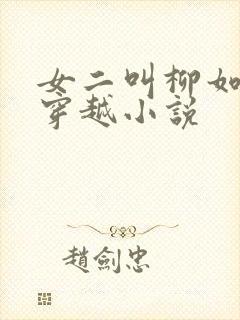 女二叫柳如
穿越小説
趙劍忠